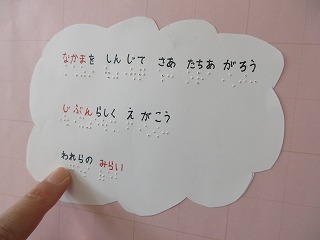 なかまを しんじて さあ たちあ がろう
じぶんらしく え がこう
われらの みらい